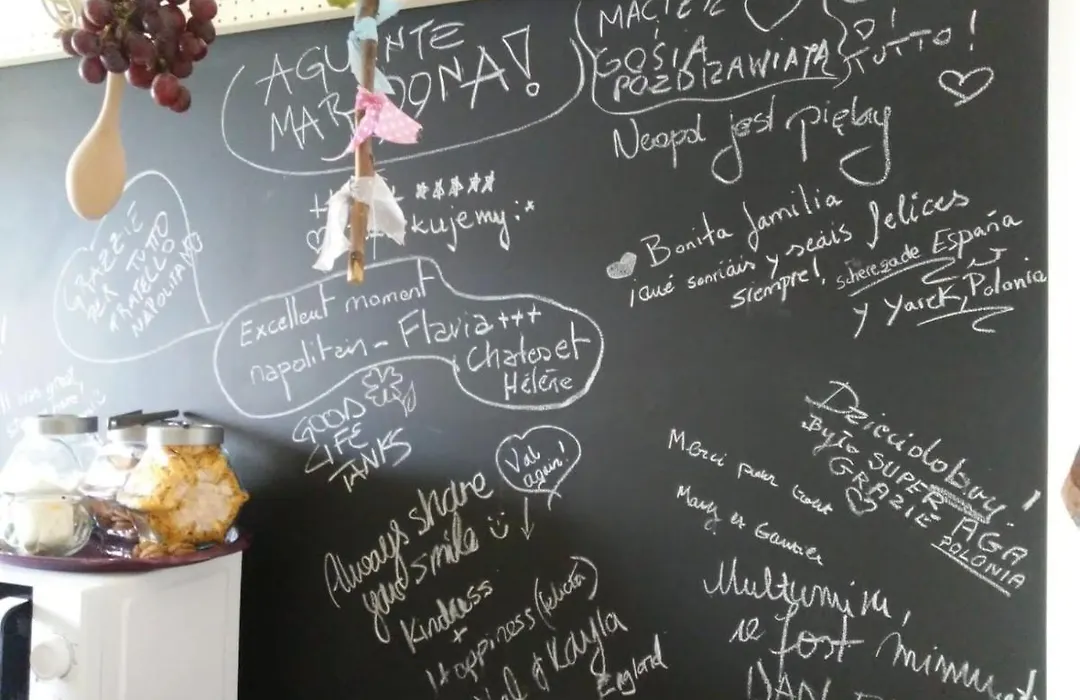 AGUANTE
MARADONA!
MACIEJ E
GOSIA
POZDRAWIAJĄ
DI
TUTTO!
Neapol jest piękny
kujemy:*
GRAZIE
PER TUTTO
FRATELLO
NAPOLITANO
♥ Bonita familia
¡qué sonriáis y seáis felices
siempre! scheregade España
y Yarek, Polonia
Excellent moment
napolitain - Flavia +++
Chateset
Hélène
GOOD
LIFE
TANKS
Val
again!
Always share
your smile :)
Kindness
+
Happiness (felicità)
& Kayla
England
Dzieńdobry!
Było SUPER
GRAZIE AGA
POLONIA
Merci pour tout
Mary et Gautier
Multumim,
a fost minunat
DAN